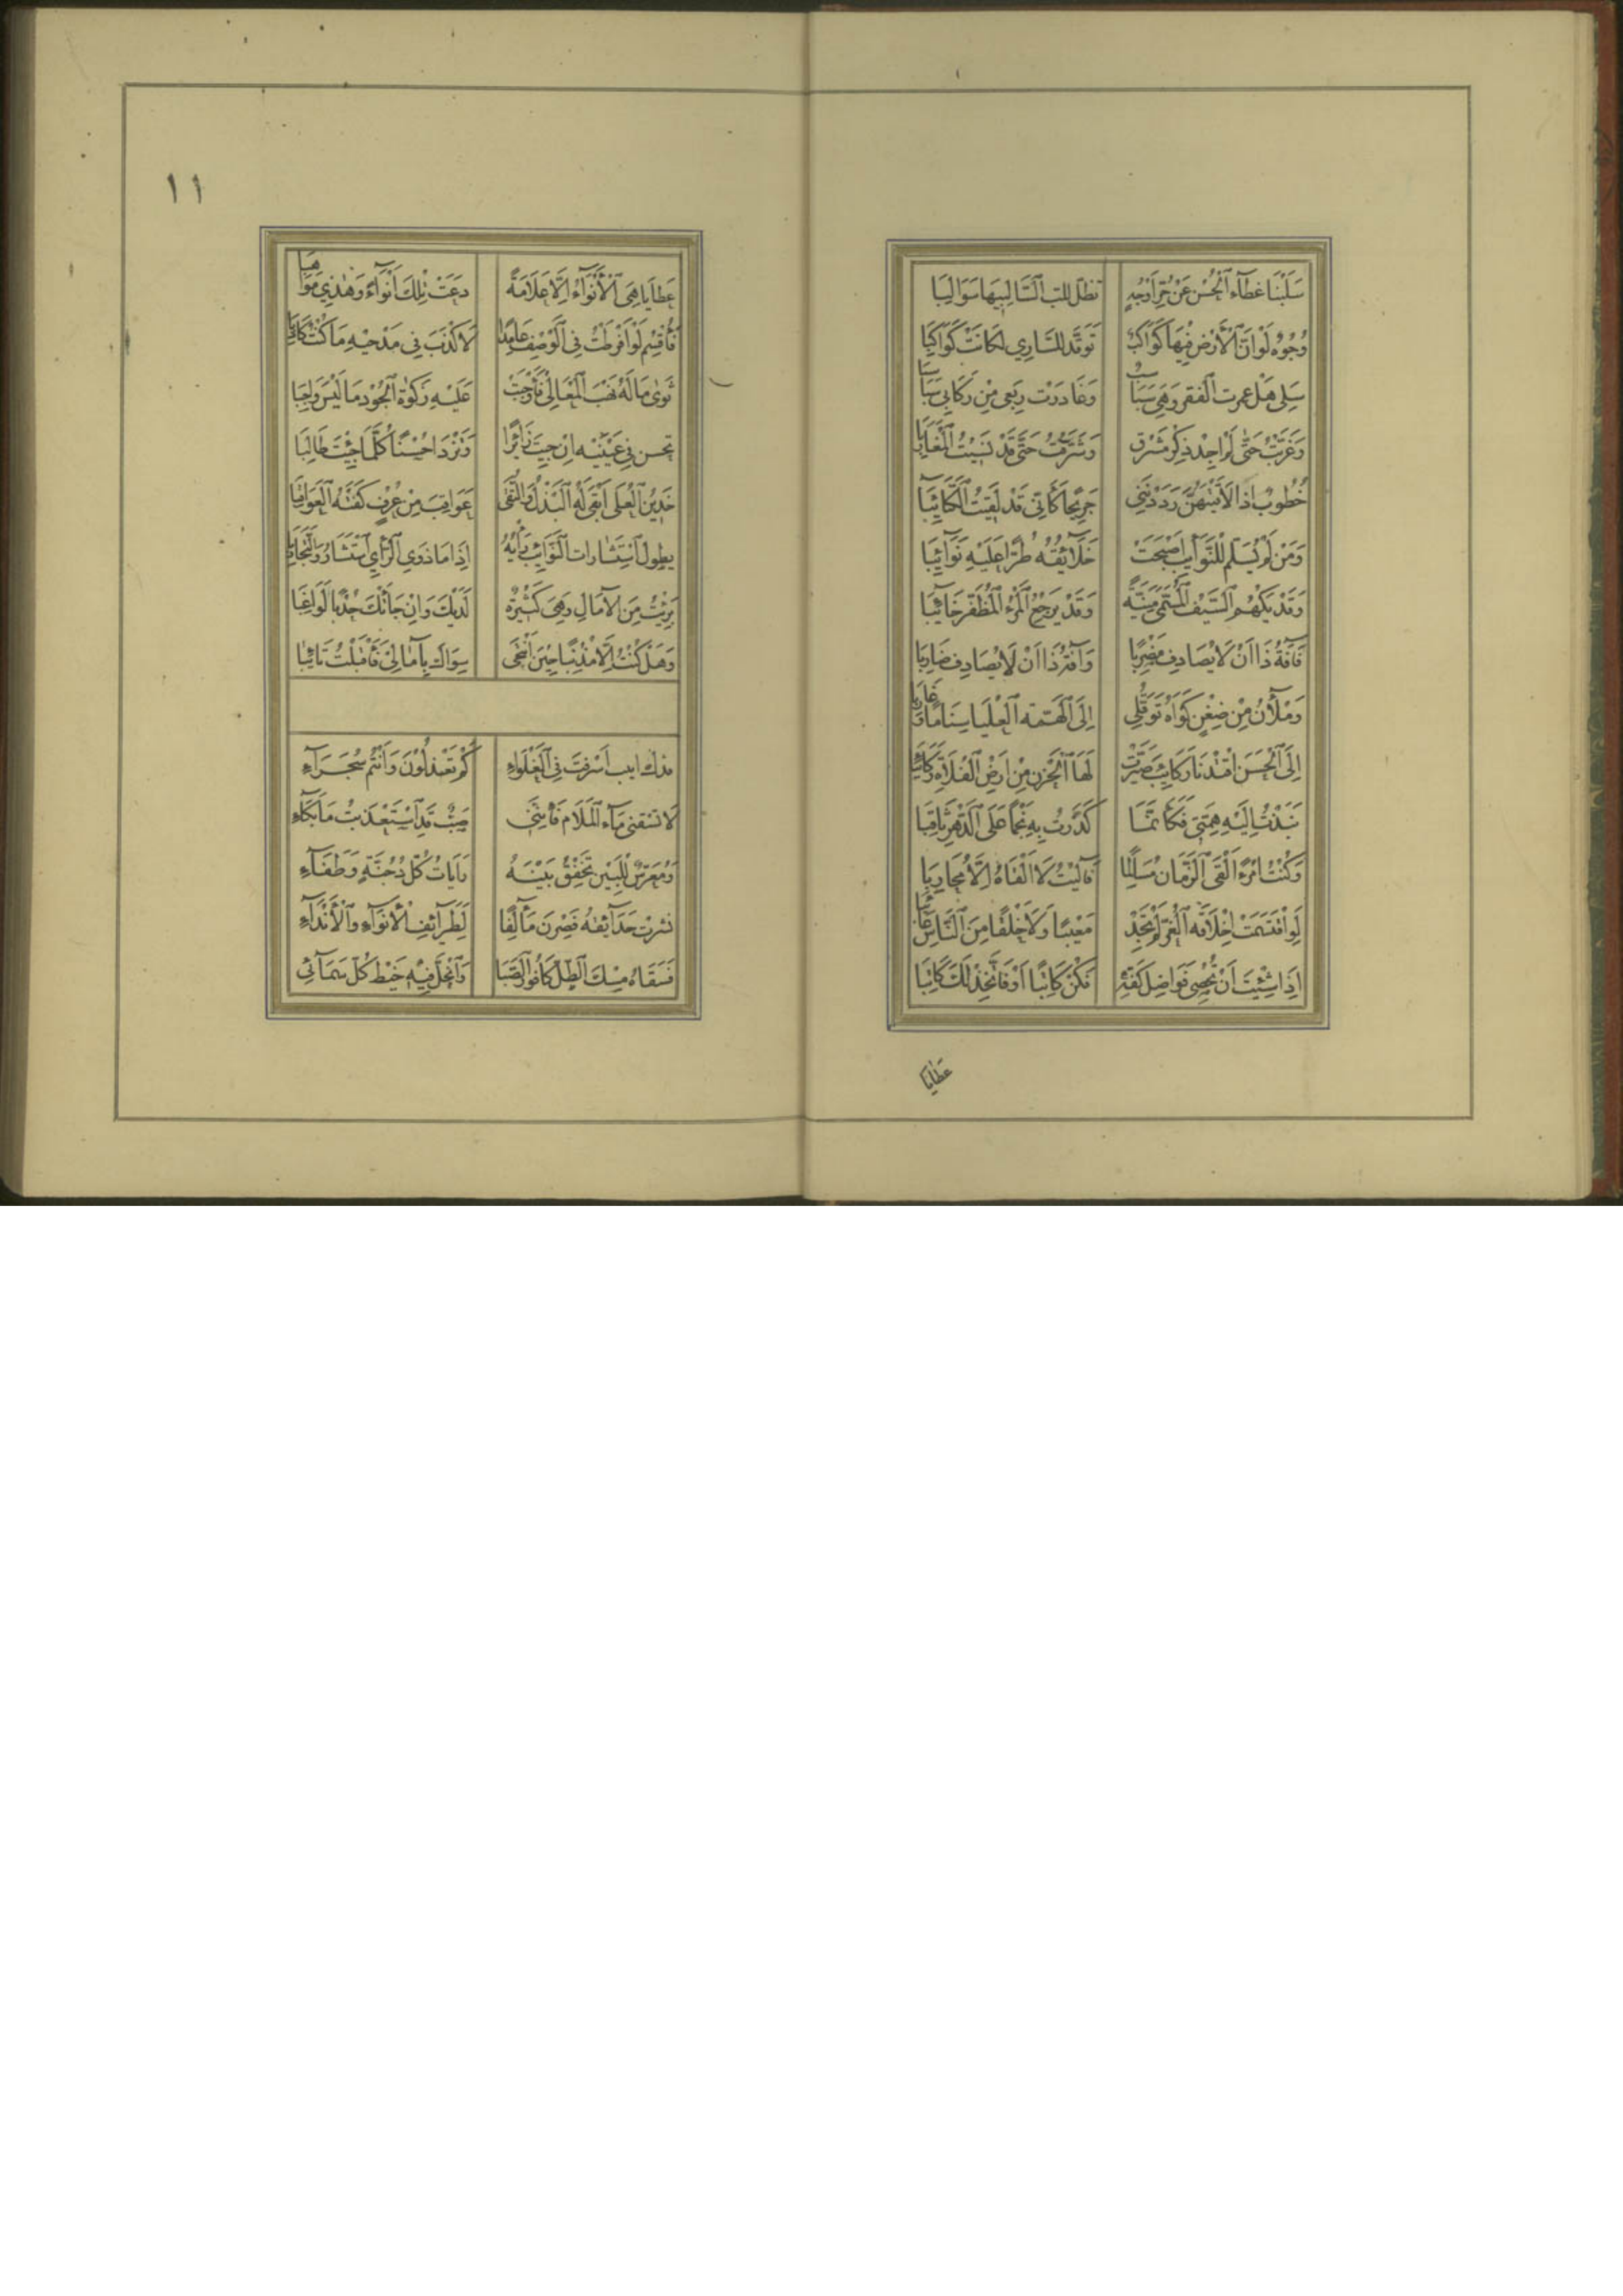 سَلَبْنَا غِطَآءَ ٱلْحُسْنِ عَنْ حُرِّ اَوْجُهٍ تظل للب ٱلسَّالِبِيهَا سَوَالِبَا
وُجُوْهٌ لَوْ اَنَّ ٱلْأَرْضَ فِيْهَا كَوَاكِبٌ تَوَقَّدُ لِلسَّارِي لَكَانَتْ كَوَاكِبَا
سَلِى هَلْ عمرت ٱلقفر وَهِيَ سَبَاسِبٌ وَغَادَرْت رَبعى مِنْ رِكَابِي سَبَاسِبَا
وَغَرَّبْتُ حَتّٰى لَمْ اَجِدْ ذِكْرَ مَشْرِقٍ وَشَرَّقْتُ حَتّٰى قَدْ نَسِيْتُ ٱلْمَغَارِبَا
خُطُوبٌ اِذَا لَاقَيْتُهُنَّ رَدَدْنَنِي جَرِيْحًا كَأَنِّي قَدْ لَقِيْتُ ٱلْكَتَائِبَا
وَمَنْ لَمْ يُسَلِّمْ لِلنَّوَآئِبِ اَصْبَحَتْ خَلَآئِقُهُ طُرًّا عَلَيْهِ نَوَآئِبَا
وَقَدْ يَكْهُمُ ٱلسَّيْفُ ٱلْمُسَمّٰى مَنِيَّةً وَقَدْ يَرْجِعُ ٱلْمَرْءُ ٱلْمُظَفَّرُ خَائِبَا
فَآفَةُ ذَا اَنْ لَا يُصَادِفَ مَضْرِبًا وَآفَةُ ذَا اَنْ لَا يُصَادِفَ ضَارِبَا
وَمَلْآنُ مِنْ ضِغْنٍ كَوَاهُ تَوَقُّلِي اِلَى ٱلْهِمَّةِ ٱلْعُلْيَا سَنَامًا وَغَارِبَا
اِلَى ٱلْحَسَنِ اقْتَدْنَا رَكَائِبَ صَيَّرَتْ لَهَا ٱلْحَزْنَ مِنْ اَرْضِ ٱلْفَلَاةِ رَكَائِبَا
نَبَذْتُ اِلَيْهِ هِمَّتِي فَكَأَنَّمَا كَدَرْتُ بِهِ نَجْمًا عَلَى ٱلدَّهْرِ ثَاقِبَا
وَكُنْتُ امْرَءًا اَلْقَى ٱلزَّمَانَ مُسَالِمًا فَآلَيْتُ لَا اَلْقَاهُ اِلَّا مُحَارِبَا
لَوِ اقْتُسِمَتْ اَخْلَاقُهُ ٱلْغُرُّ لَمْ تَجِدْ مَعِيْبًا وَلَا خَلْقًا مِنَ ٱلنَّاسِ عَائِبَا
اِذَا شِئْتَ اَنْ تُحْصِي فَوَاضِلَ كَفِّهِ فَكُنْ كَاتِبًا اَوْ فَاتَّخِذْ لَكَ كَاتِبَا
عَطَايَا
١١
عَطَايَا هِيَ ٱلْأَنْوَآءُ اِلَّا عَلَامَةً دَعَتْ تِلْكَ اَنْوَآءً وَهٰذِي مَوَاهِبَا
فَأُقْسِمُ لَوْ اَفْرَطْتُ فِي ٱلْوَصْفِ عَامِدًا لِاَكْذِبَ فِي مَدْحِيْهِ مَا كُنْتُ كَاذِبَا
ثَوٰى مَالُهُ نَهْبَ ٱلْمَعَالِي فَأَوْجَبَتْ عَلَيْهِ زَكٰوةُ ٱلْجُوْدِ مَا لَيْسَ وَاجِبَا
تحسن فِي عَيْنَيْهِ اِنْ جِيْتَ زَائِرًا وَتَزْدَادُ حُسْنًا كُلَّمَا جِئْتَ طَالِبَا
خَدِيْنُ ٱلْعُلَى اَبْقَى لَهُ ٱلْبَذْلُ وَٱلتُّقَى عَوَاقِبَ مِنْ عُرْفٍ كَفَتْهُ ٱلْعَوَاقِبَا
يطول ٱسْتِشَارَاتِ ٱلتَّجَارِبِ رَأْيُهُ اِذَا مَا ذَوِي ٱلرَّأْيِ ٱسْتَشَارُوا ٱلتَّجَارِبَا
بَرِئْتُ مِنَ الْآمَالِ وَهِيَ كَثِيْرَةٌ لَدَيْكَ وَاِنْ جَاءَتْكَ حُدْبًا لَوَاغِبَا
وَهَلْ كُنْتُ اِلَّا مُذْنِبًا حِيْنَ اَنْتَحَى سِوَاكَ بِآمَالِي فَأَقْبَلْتُ تَائِبَا
قدك اتيب اَسْرَفْتَ فِي ٱلْغُلَوَاءِ كَمْ تَعْذِلُوْنَ وَاَنْتُمْ سُجَرَآءِ
لَا تَسْقِنِي مَآءَ ٱلْمَلَامِ فَإِنَّنِي صَبٌّ قَدِ ٱسْتَعْذَبْتُ مَآءَ بُكَاءِ
وَمُعَرَّسٌ لِلْبَيْنِ تَخْفِقُ بَيْنَهُ رَايَاتُ كُلِّ دُجُنَّةٍ وَطْفَآءِ
نشرت حَدَآئِقُهُ فَصِرْنَ مَآلِفًا لِطَرَآئِفِ ٱلْأَنْوَآءِ وَٱلْأَنْدَآءِ
فَسَقَاهُ مِسْكَ ٱلطَّلِّ كَافُورُ ٱلصَّبَا وَٱنْحَلَّ فِيْهِ خَيْطُ كُلِّ سَمَآئِي